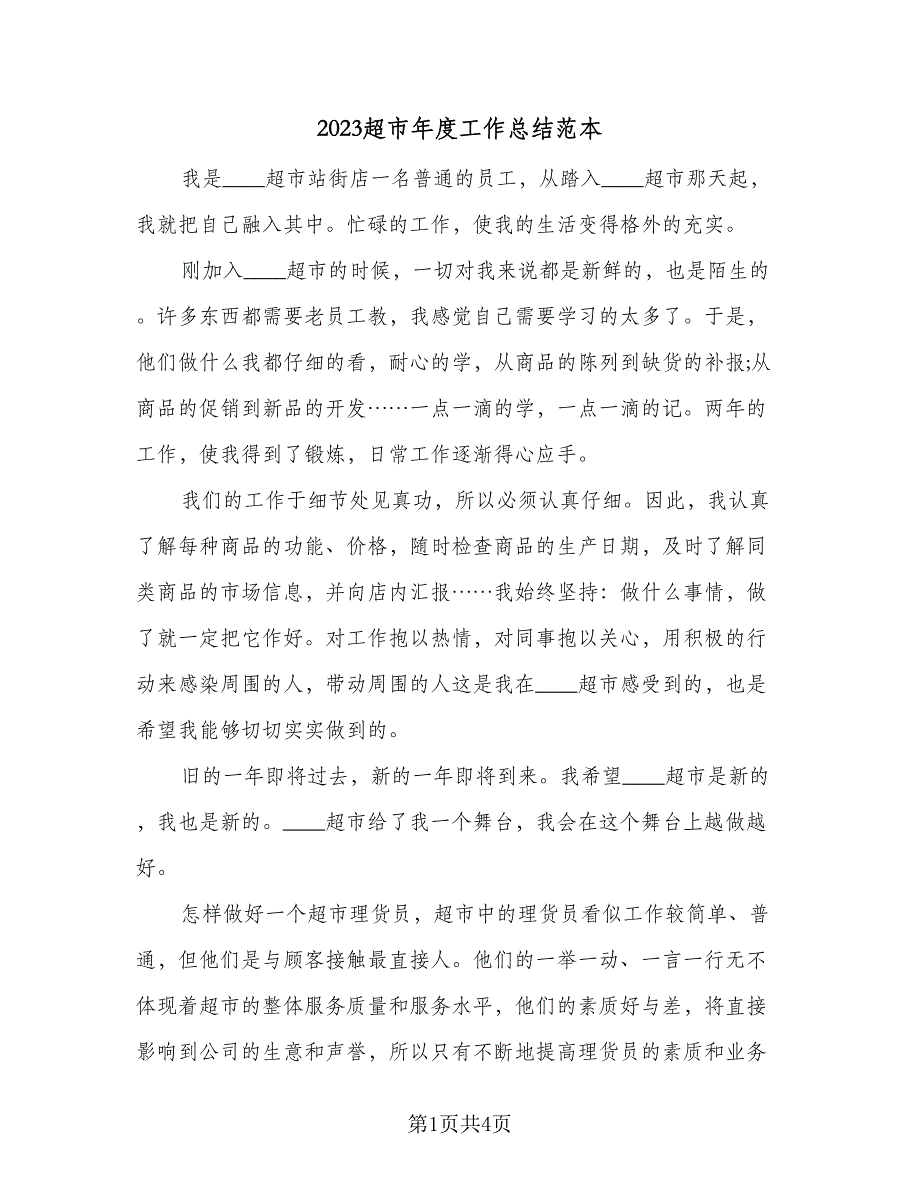 2023超市年度工作总结范本
我是____超市站街店一名普通的员工，从踏入____超市那天起，
我就把自己融入其中。忙碌的工作，使我的生活变得格外的充实。
刚加入____超市的时候，一切对我来说都是新鲜的，也是陌生的
。许多东西都需要老员工教，我感觉自己需要学习的太多了。于是，
他们做什么我都仔细的看，耐心的学，从商品的陈列到缺货的补报;从
商品的促销到新品的开发……一点一滴的学，一点一滴的记。两年的
工作，使我得到了锻炼，日常工作逐渐得心应手。
我们的工作于细节处见真功，所以必须认真仔细。因此，我认真
了解每种商品的功能、价格，随时检查商品的生产日期，及时了解同
类商品的市场信息，并向店内汇报……我始终坚持：做什么事情，做
了就一定把它作好。对工作抱以热情，对同事抱以关心，用积极的行
动来感染周围的人，带动周围的人这是我在____超市感受到的，也是
希望我能够切切实实做到的。
旧的一年即将过去，新的一年即将到来。我希望____超市是新的
，我也是新的。____超市给了我一个舞台，我会在这个舞台上越做越
好。
怎样做好一个超市理货员，超市中的理货员看似工作较简单、普
通，但他们是与顾客接触最直接人。他们的一举一动、一言一行无不
体现着超市的整体服务质量和服务水平，他们的素质好与差，将直接
影响到公司的生意和声誉，所以只有不断地提高理货员的素质和业务
第1页共4页